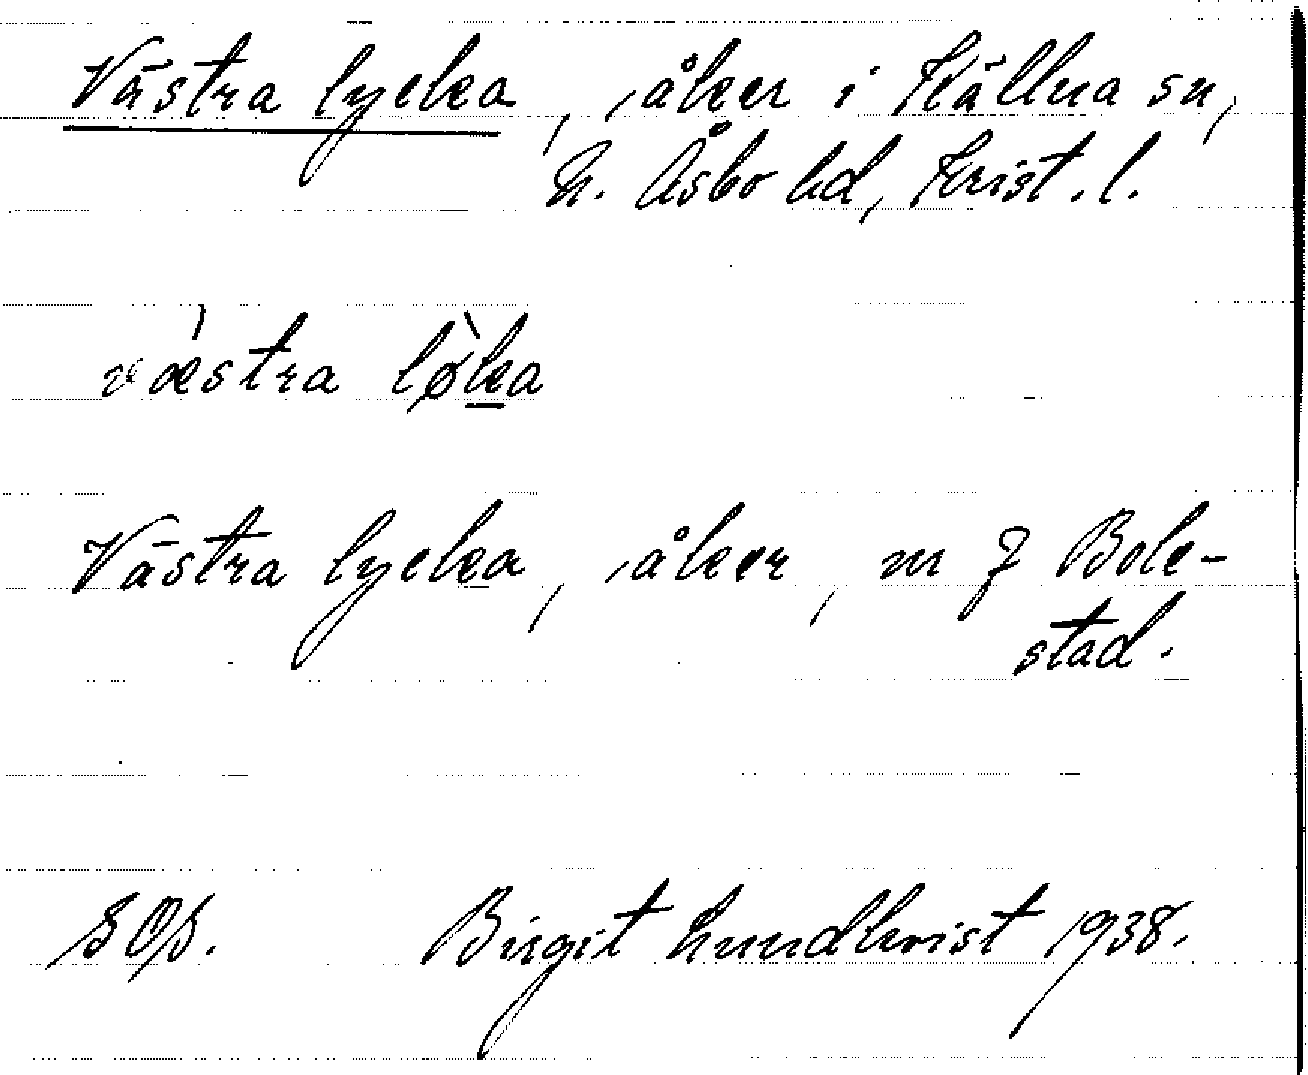 Västra lycka, åker i Källna sn,
N. Åsbo hd, Krist. l.
væstra løka
Västra lycka, åker, m J Bole-
stad.
Birgit Lundkvist 1938.